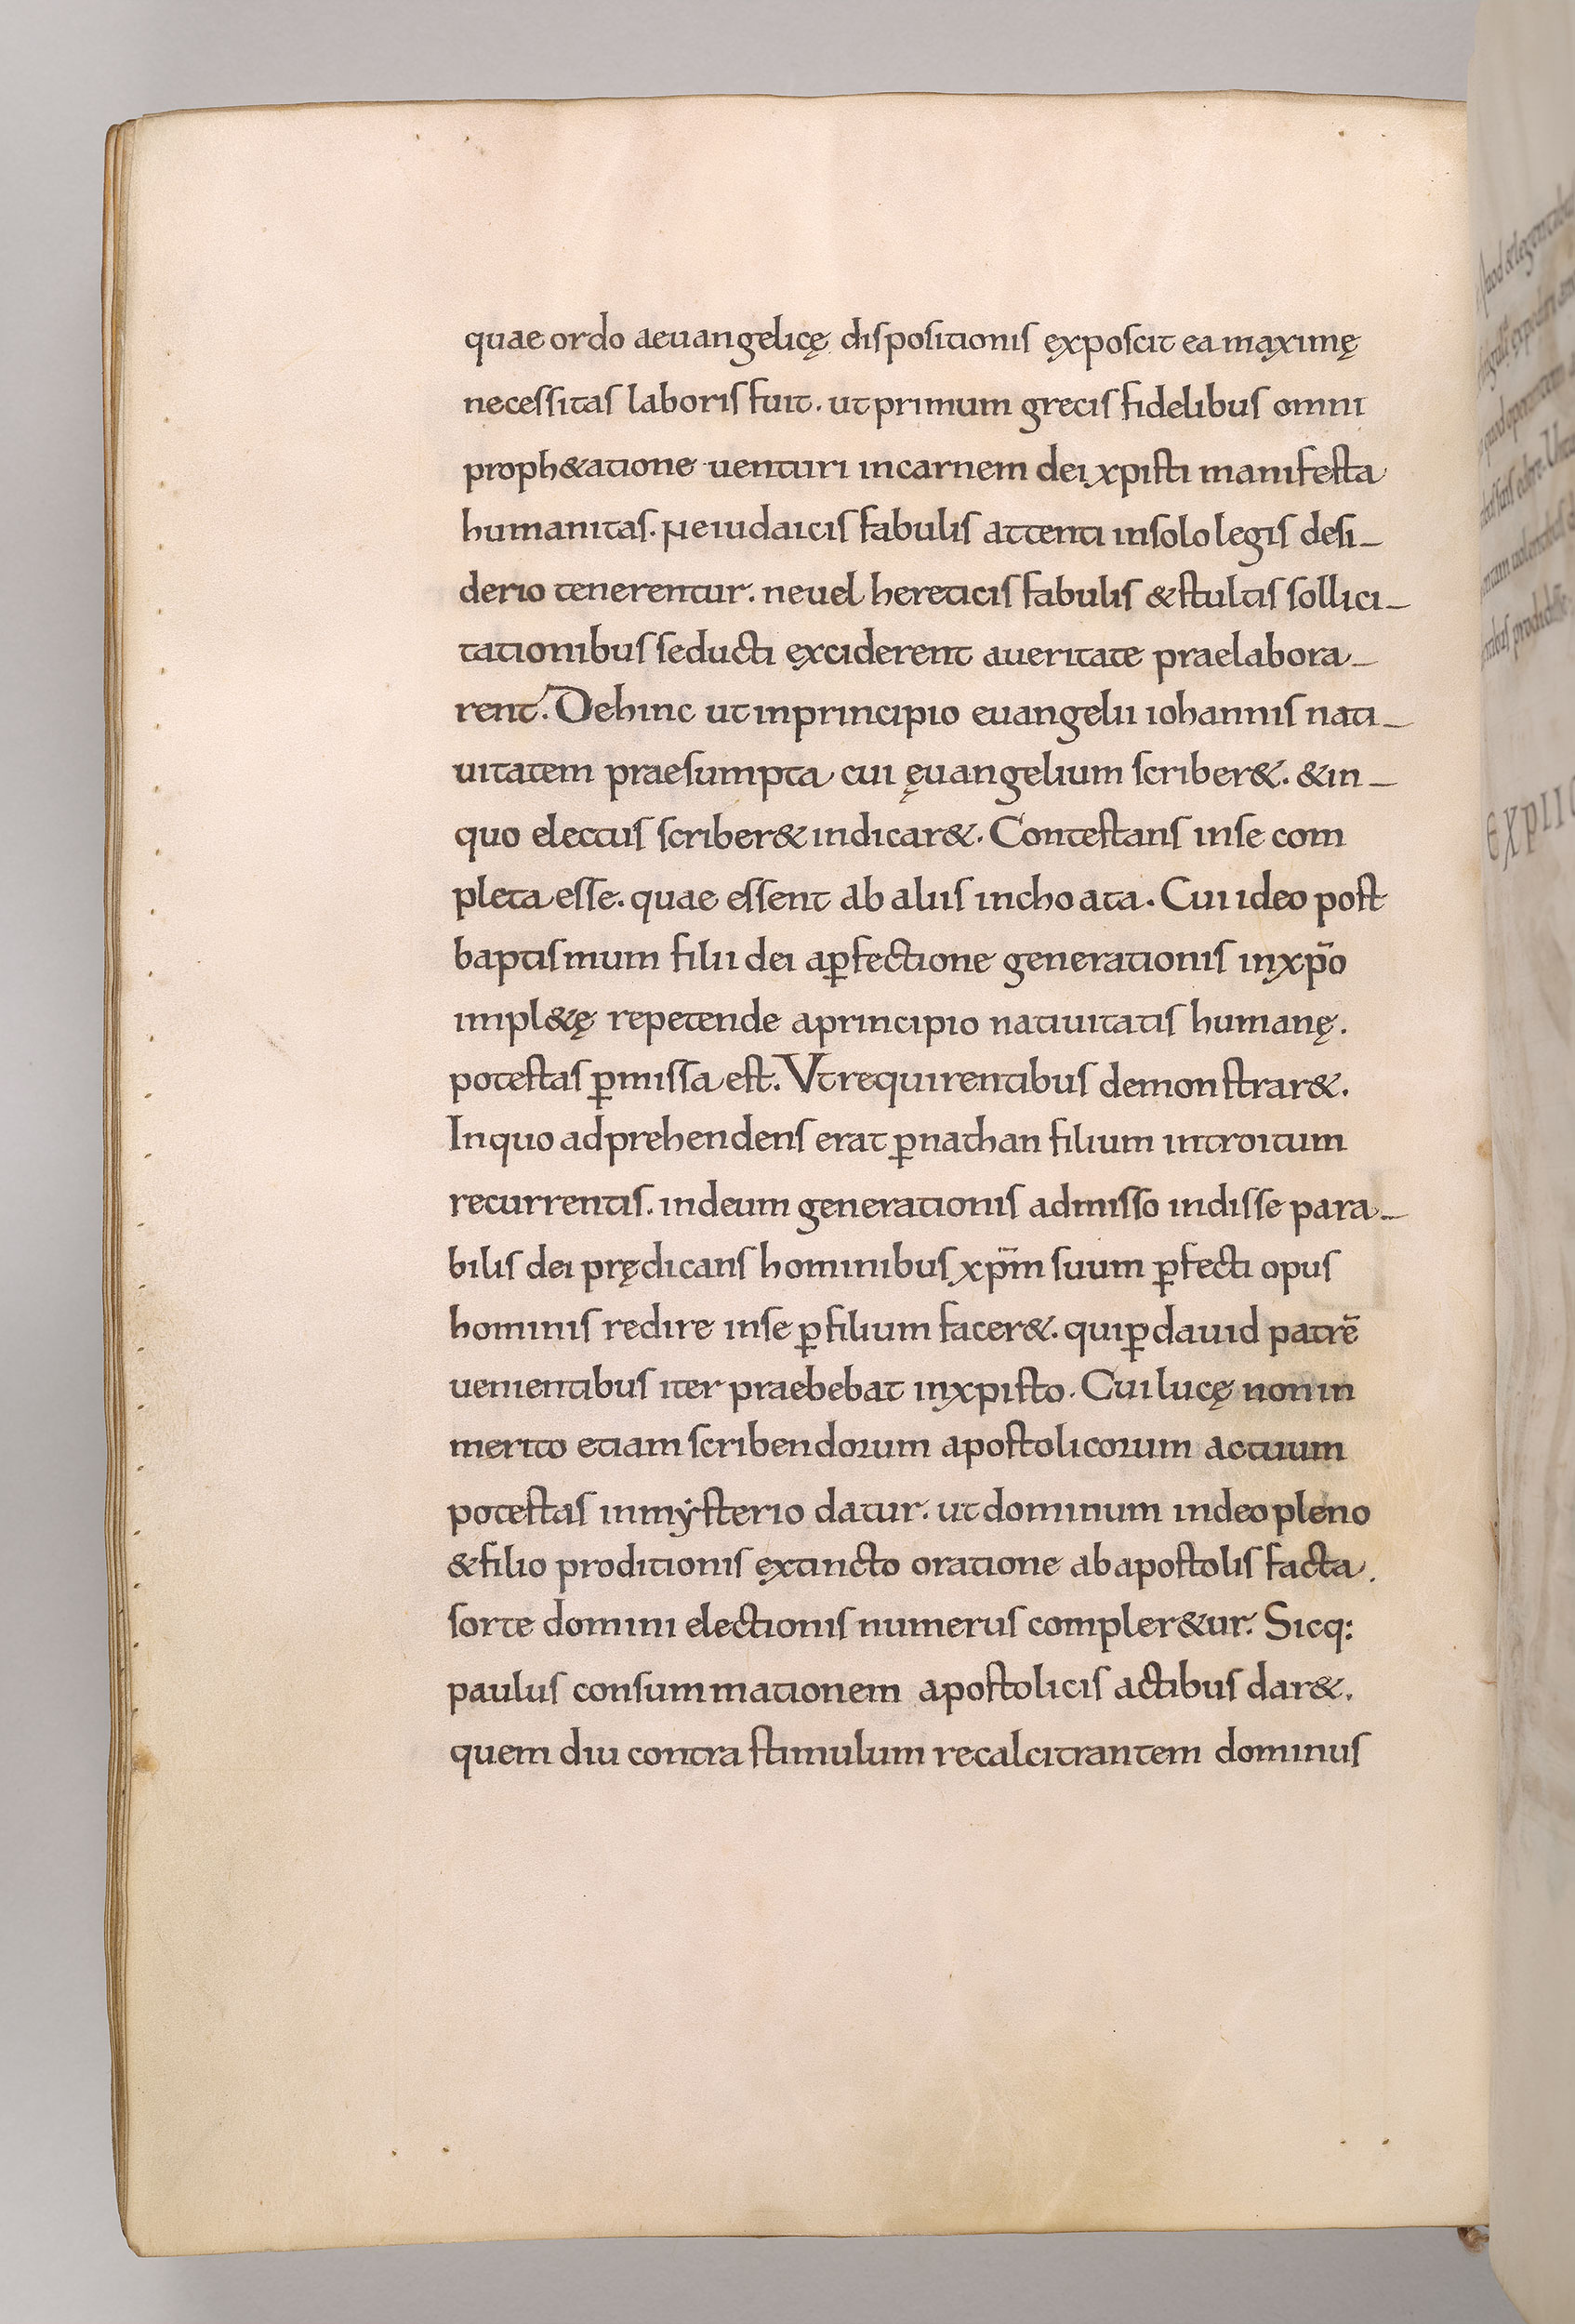 quae ordo aeuangelicę dispositionis ęxposcit ea maximę
necessitas laboris fuit. ut primum grecis fidelibus omni
proph&atione uenturi incarnem dei xpisti manifesta
humanitas. Ne iudaicis fabulis attenti insolo legis desi-
derio tenerentur. neuel hereticis fabulis & stultis sollici-
tationibus seducti ęxciderent aueritate praelabora-
rent. Dehinc ut inprincipio euangelii iohannis nati-
uitatem praesumpta cui ęuangelium scriber&. & in-
quo electus scriber& indicar&. Contestans inse com
pleta esse. quae essent ab aliis inchoata. Cui ideo post
baptismum filii dei aꝑfectione generationis inxp̄o
impl&ę repetende aprincipio natiuitatis humanę.
potestas ꝑmissa est. Vt requirentibus demonstrar&.
In quo adprehendens erat ꝑnathan filium introitum
recurrentis. indeum generationis admisso indisse para-
bilis dei prędicans hominibus xp̄m suum ꝑfecti opus
hominis redire inse ꝑfilium facer&. qui ꝑdauid patrē
uenientibus iter praebebat inxpisto. Cui lucę non in
merito etiam scribendorum apostolicorum actuum
potestas inmẏsterio datur. ut dominum indeo pleno
& filio proditionis extincto oratione ab apostolis facta.
sorte domini electionis numerus compler&ur. Sicq:
paulus consummationem apostolicis actibus dar&.
quem diu contra stimulum recalcitrantem dominus
EXPLIC